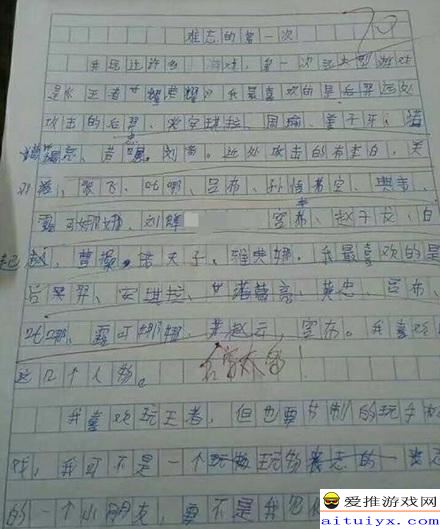 难忘的第一次
我玩过许多 游戏，第一次玩大型游戏
是《王者荣耀》我最喜欢的是后羿远处
攻击的后羿、安琪拉、周瑜、姜子牙、诸
葛亮、黄忠。刘备。近处攻击的有李白、关
羽、张飞、哪吒、吕布、孙悟空、典韦、
露娜、刘 、赵子龙、白
起、曹操、 天子、雅典娜。我最喜欢的是
后羿、安琪拉、诸葛亮、黄忠、吕布、
哪吒、露娜、赵云、 。我喜欢
这几个人物。
名字太多！
我喜欢玩王者，但也要节制的玩手机
戏，我可不是一个玩物丧志的
的一个小朋友 要不是我
爱推游戏网
aituiyx.com